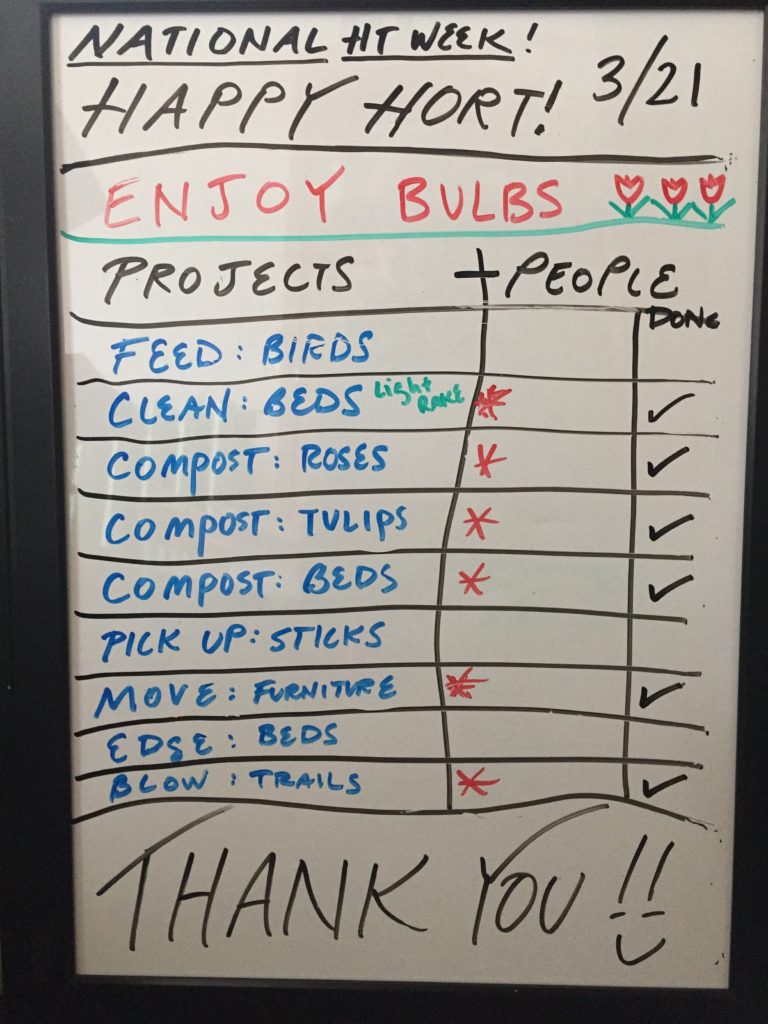 NATIONAL HT WEEK!
HAPPY HORT! 3/21
ENJOY BULBS
PROJECTS + PEOPLE
DONE
FEED: BIRDS
CLEAN: BEDS Light RAKE * ✓
COMPOST: ROSES * ✓
COMPOST: TULIPS * ✓
COMPOST: BEDS * ✓
PICK UP: STICKS
MOVE: FURNITURE * ✓
EDGE: BEDS
BLOW: TRAILS * ✓
THANK YOU!!